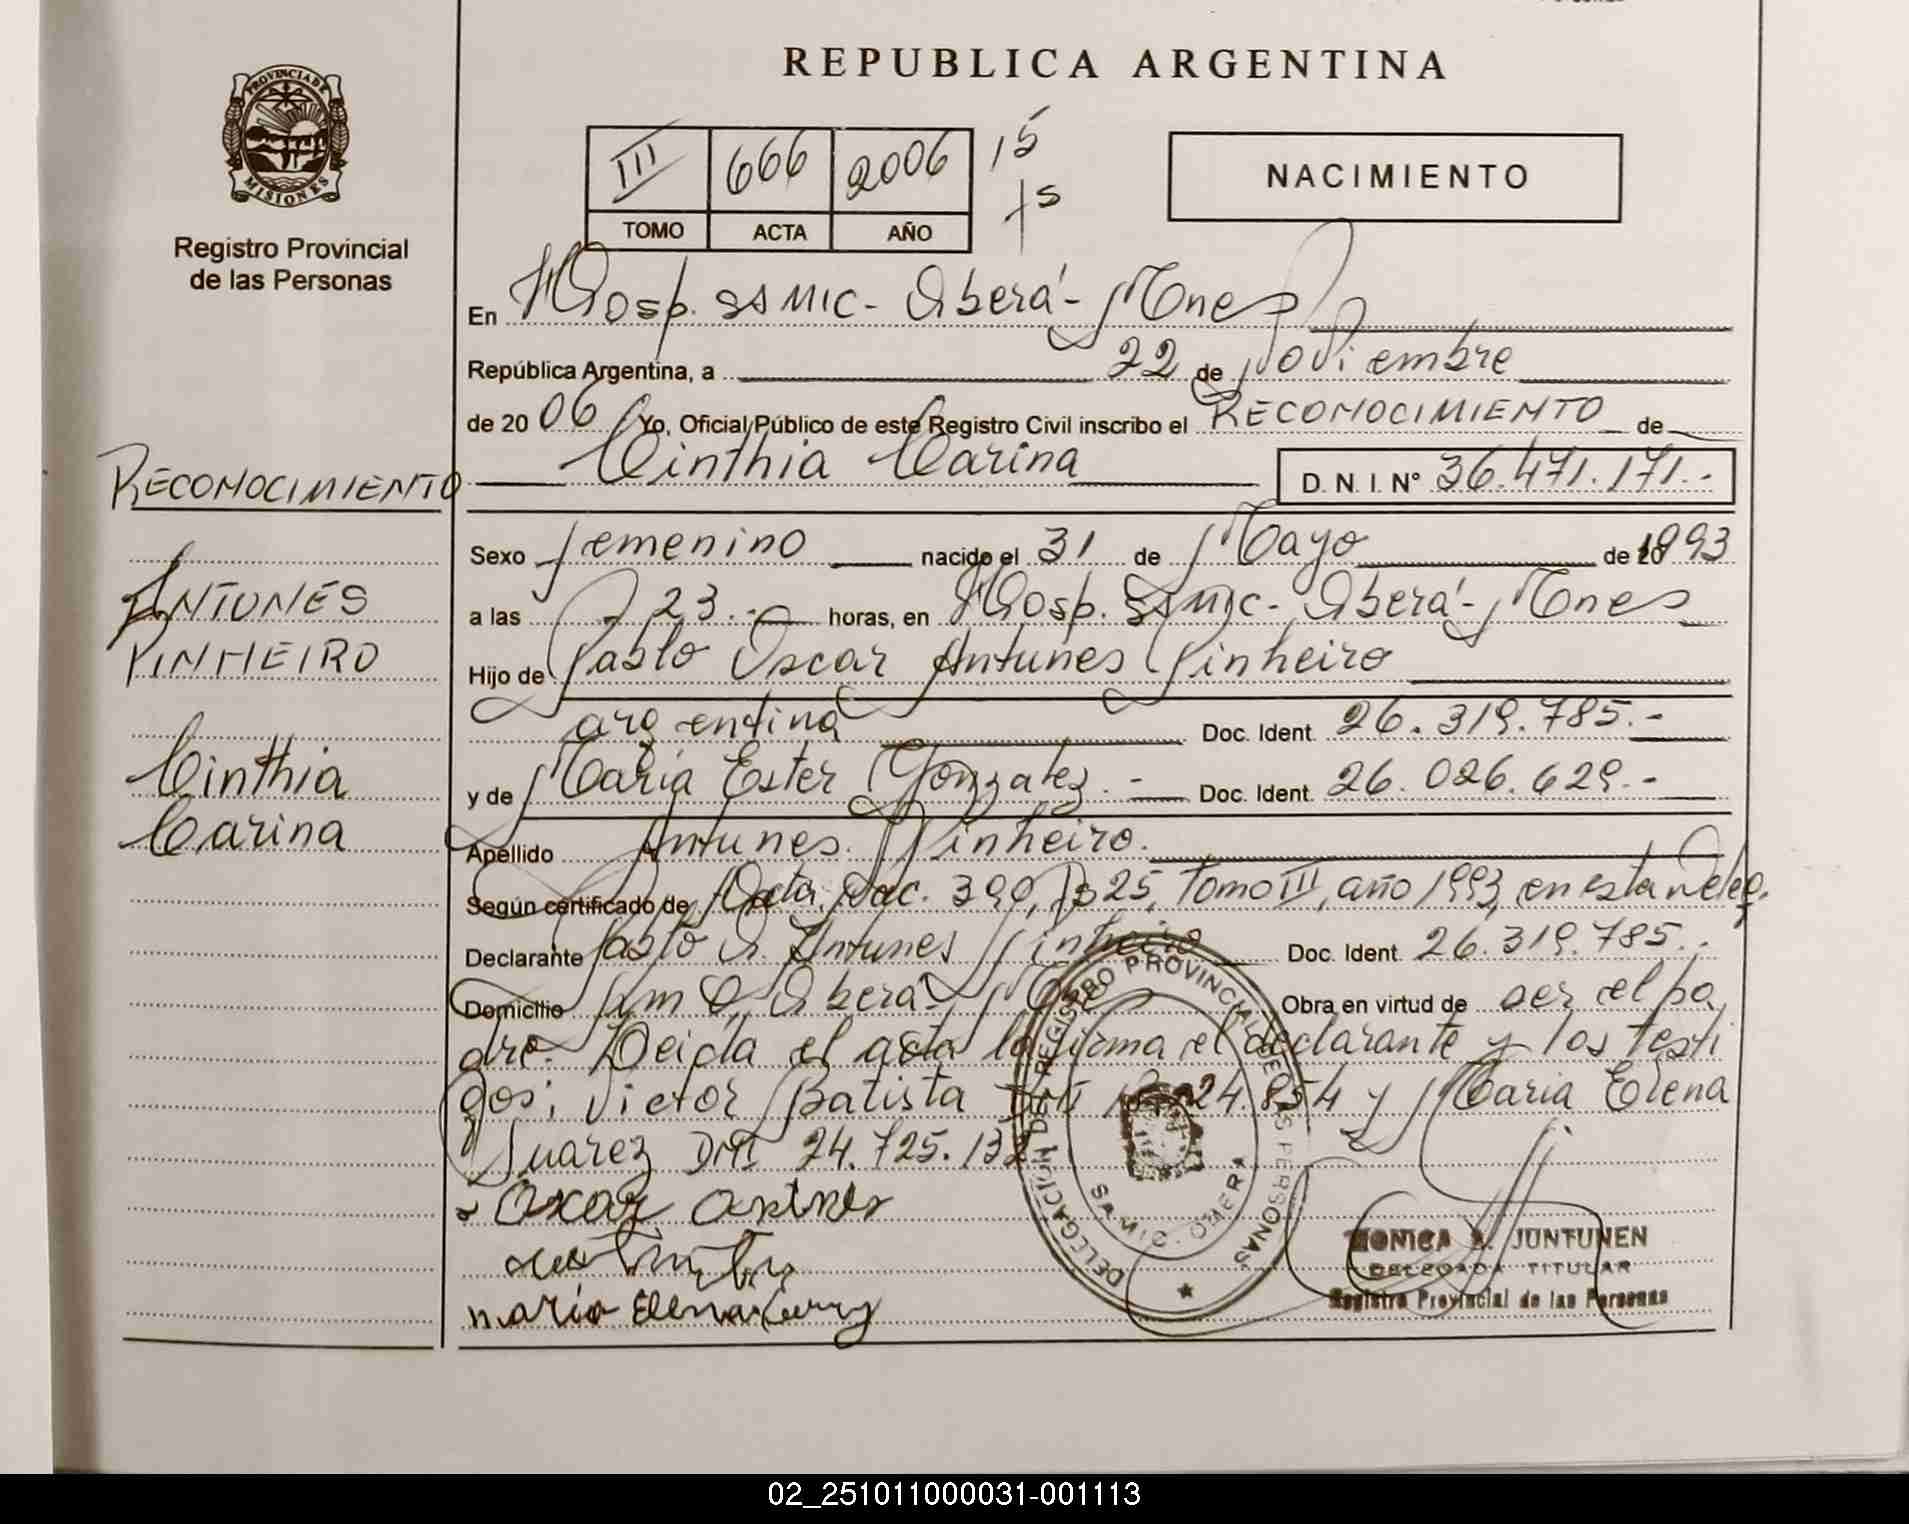 REPUBLICA ARGENTINA
PROVINCIA DE
MISIONES
Registro Provincial
de las Personas
III 666 2006 15
TOMO ACTA AÑO
NACIMIENTO
En Hosp. SAMIC - Oberá - Mnes
República Argentina, a 22 de Noviembre
de 20 06 Yo, Oficial Público de este Registro Civil inscribo el RECONOCIMIENTO de
Cinthia Carina D.N.I. Nº 36.471.171.-
Sexo femenino nacido el 31 de Mayo de 1993
a las 23.- horas, en Hosp. SAMIC - Oberá - Mnes
Hijo de Pablo Oscar Antunes Pinheiro
argentina Doc. Ident. 26.319.785.-
y de María Ester Gonzalez.- Doc. Ident. 26.026.629.-
Apellido Antunes Pinheiro.
Según certificado de Acta Nac. 390, Fº 25, Tomo III, año 1993, en esta Deleg.
Declarante Pablo O. Antunes Pinheiro Doc. Ident. 26.319.785.-
Domicilio Oberá - Mnes Obra en virtud de ser el pa
dre. Leida el acta la firma el declarante y los testi
gos: Victor Batista DNI 24.854 y Maria Elena
Suarez DNI 24.725.132
Maria Elena
DELEGACIÓN DEL REGISTRO PROVINCIAL DE LAS PERSONAS
SAMIC - OBERA
MONICA JUNTUNEN
DELEGADA TITULAR
Registro Provincial de las Personas
RECONOCIMIENTO
ANTUNES
PINHEIRO
Cinthia
Carina
02_251011000031-001113